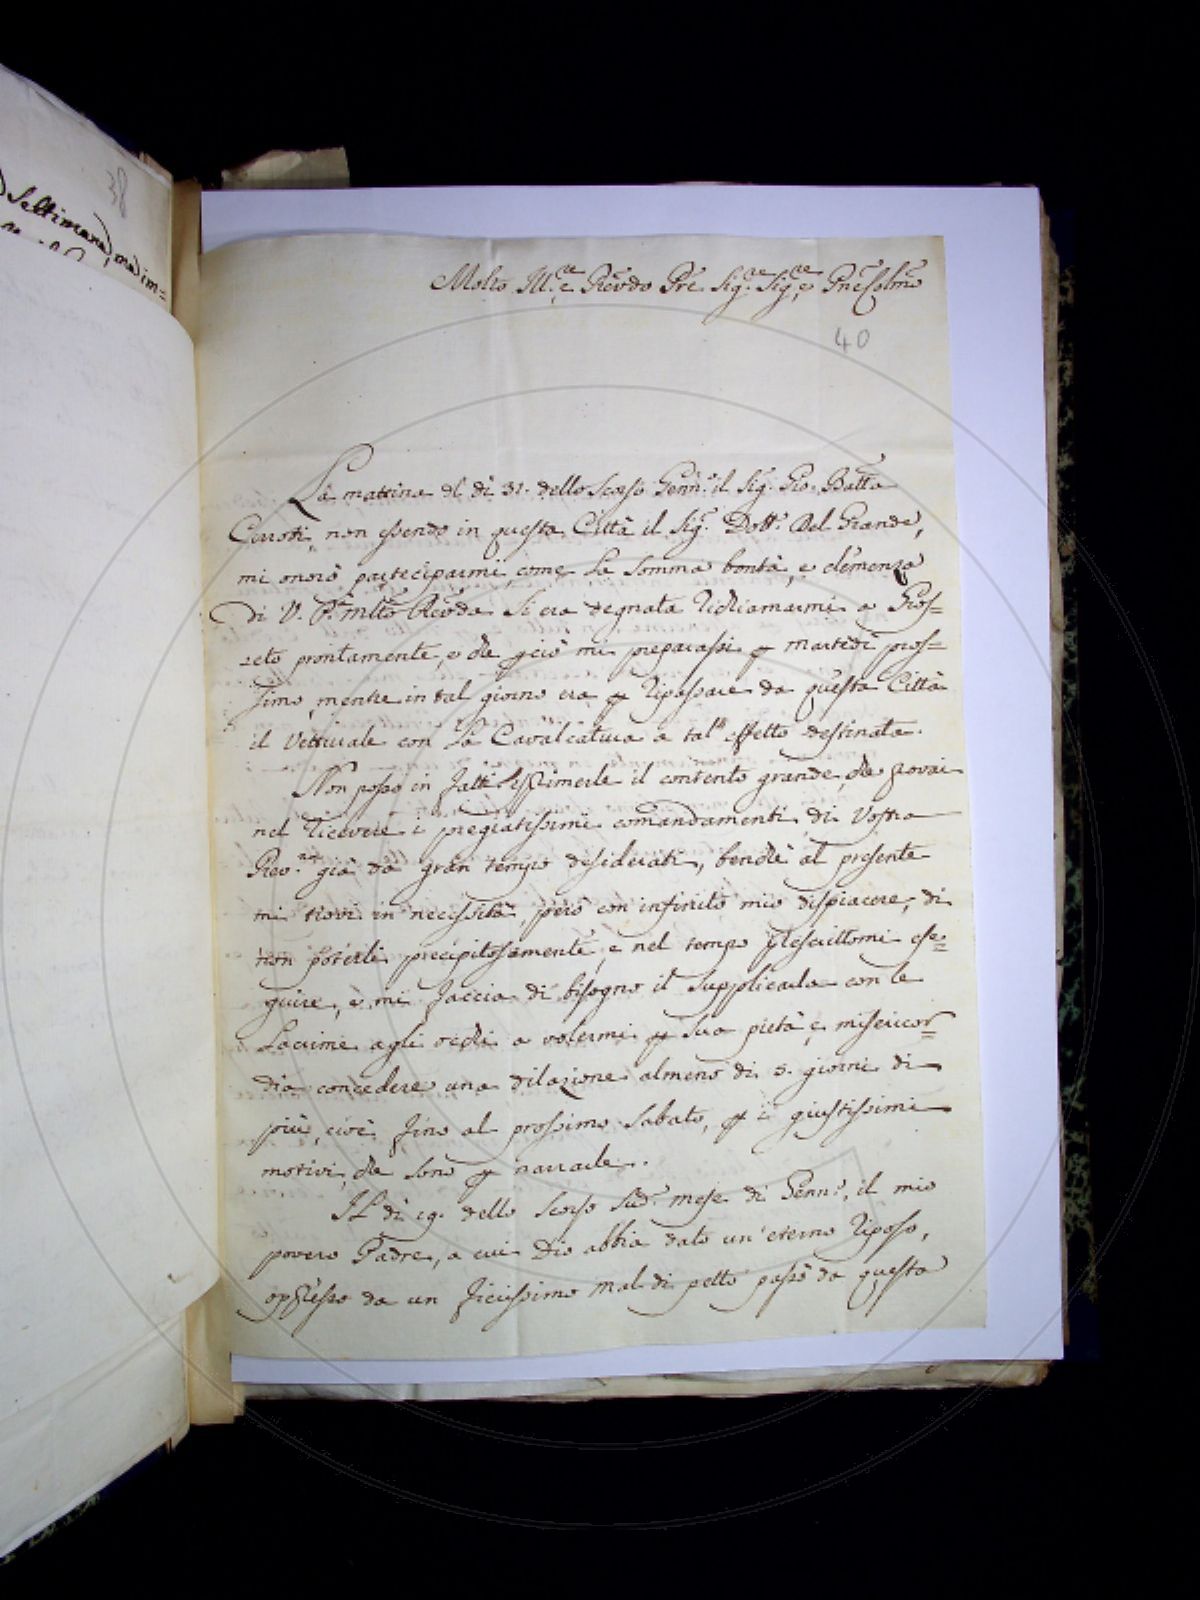 38
Settimana, ma im=
Molto Ill.re e Reṽdo Pr̃e Sig.re Sig.re e Pñe Colm̃o
40
La mattina del dì 31. dello scorso Genn.o il Sig.r Gio. Batt̃a
non essendo in questa Città il Sig.r Dott.r Del Grande,
mi onorò parteciparmi, come la somma bontà, e clemenza
di V. P. m̃lto Reṽda si era degnata richiamarmi a Gros=
seto prontamente, e che p ciò mi preparassi p martedì pros=
simo, mentre in tal giorno era p ripassare da questa Città
il Vetturale con la Cavalcatura a tal' effetto destinata.
Non posso in fatti esprimerle il contento grande, che provai
nel ricevere i pregiatissimi comandamenti di Vostra
Rev.za già da gran tempo desiderati, benchè al presente
mi trovi in necessità, però con infinito mio dispiacere, di
non poterli precipitosamente, e nel tempo prescrittomi ese=
guire, e mi faccia di bisogno il supplicarla con le
Lacrime agli occhi a volermi p sua pietà e misericor=
dia concedere una dilazione almeno di 5. giorni di
più, cioè fino al prossimo Sabato, p i giustissimi
motivi, che sono p narrarle.
Il dì 19. dello scorso sud.o mese di Genn.o, il mio
povero Padre, a cui Dio abbia dato un' eterno riposo,
oppresso da un fierissimo mal di petto passò da questa